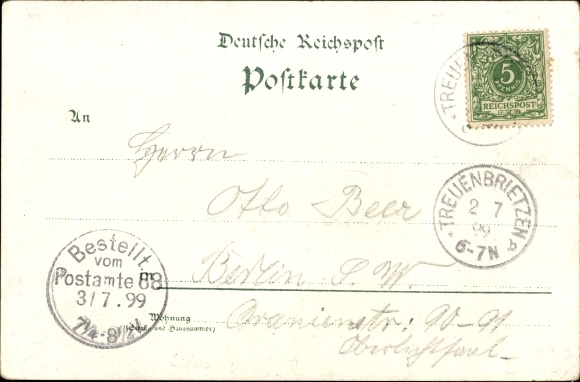 Deutsche Reichspost
Postkarte
5
PFENNIG
REICHSPOST
TREUEN
An
Herrn
Otto Beer
* TREUENBRIETZEN *
2 7
99
6-7N
Bestellt
vom
Postamte 68
3/7.99
7¼-8½V
in Berlin S. W.
Wohnung
(Straße und Hausnummer)
Oranienstr: 90-91
Oberlichtsaal